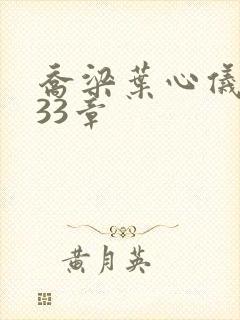 乔梁葉心儀
33章
黄月英